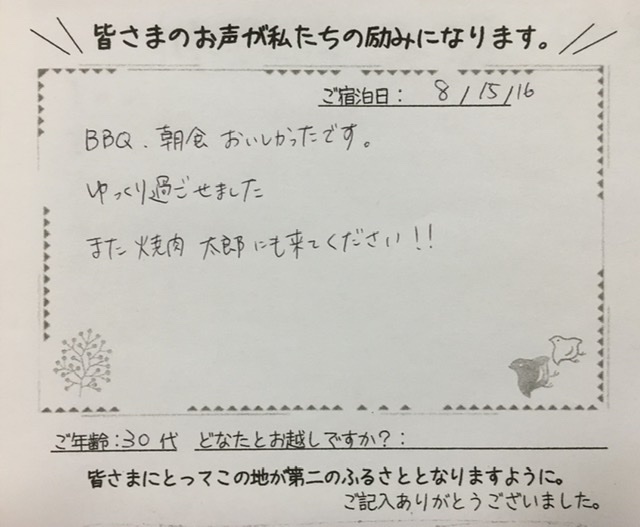 皆さまのお声が私たちの励みになります。
ご宿泊日： 8/15/16
BBQ、朝食 おいしかったです。
ゆっくり過ごせました
また 焼肉 太郎にも来てください!!
ご年齢：30代 どなたとお越しですか？：
皆さまにとってこの地が第二のふるさととなりますように。
ご記入ありがとうございました。